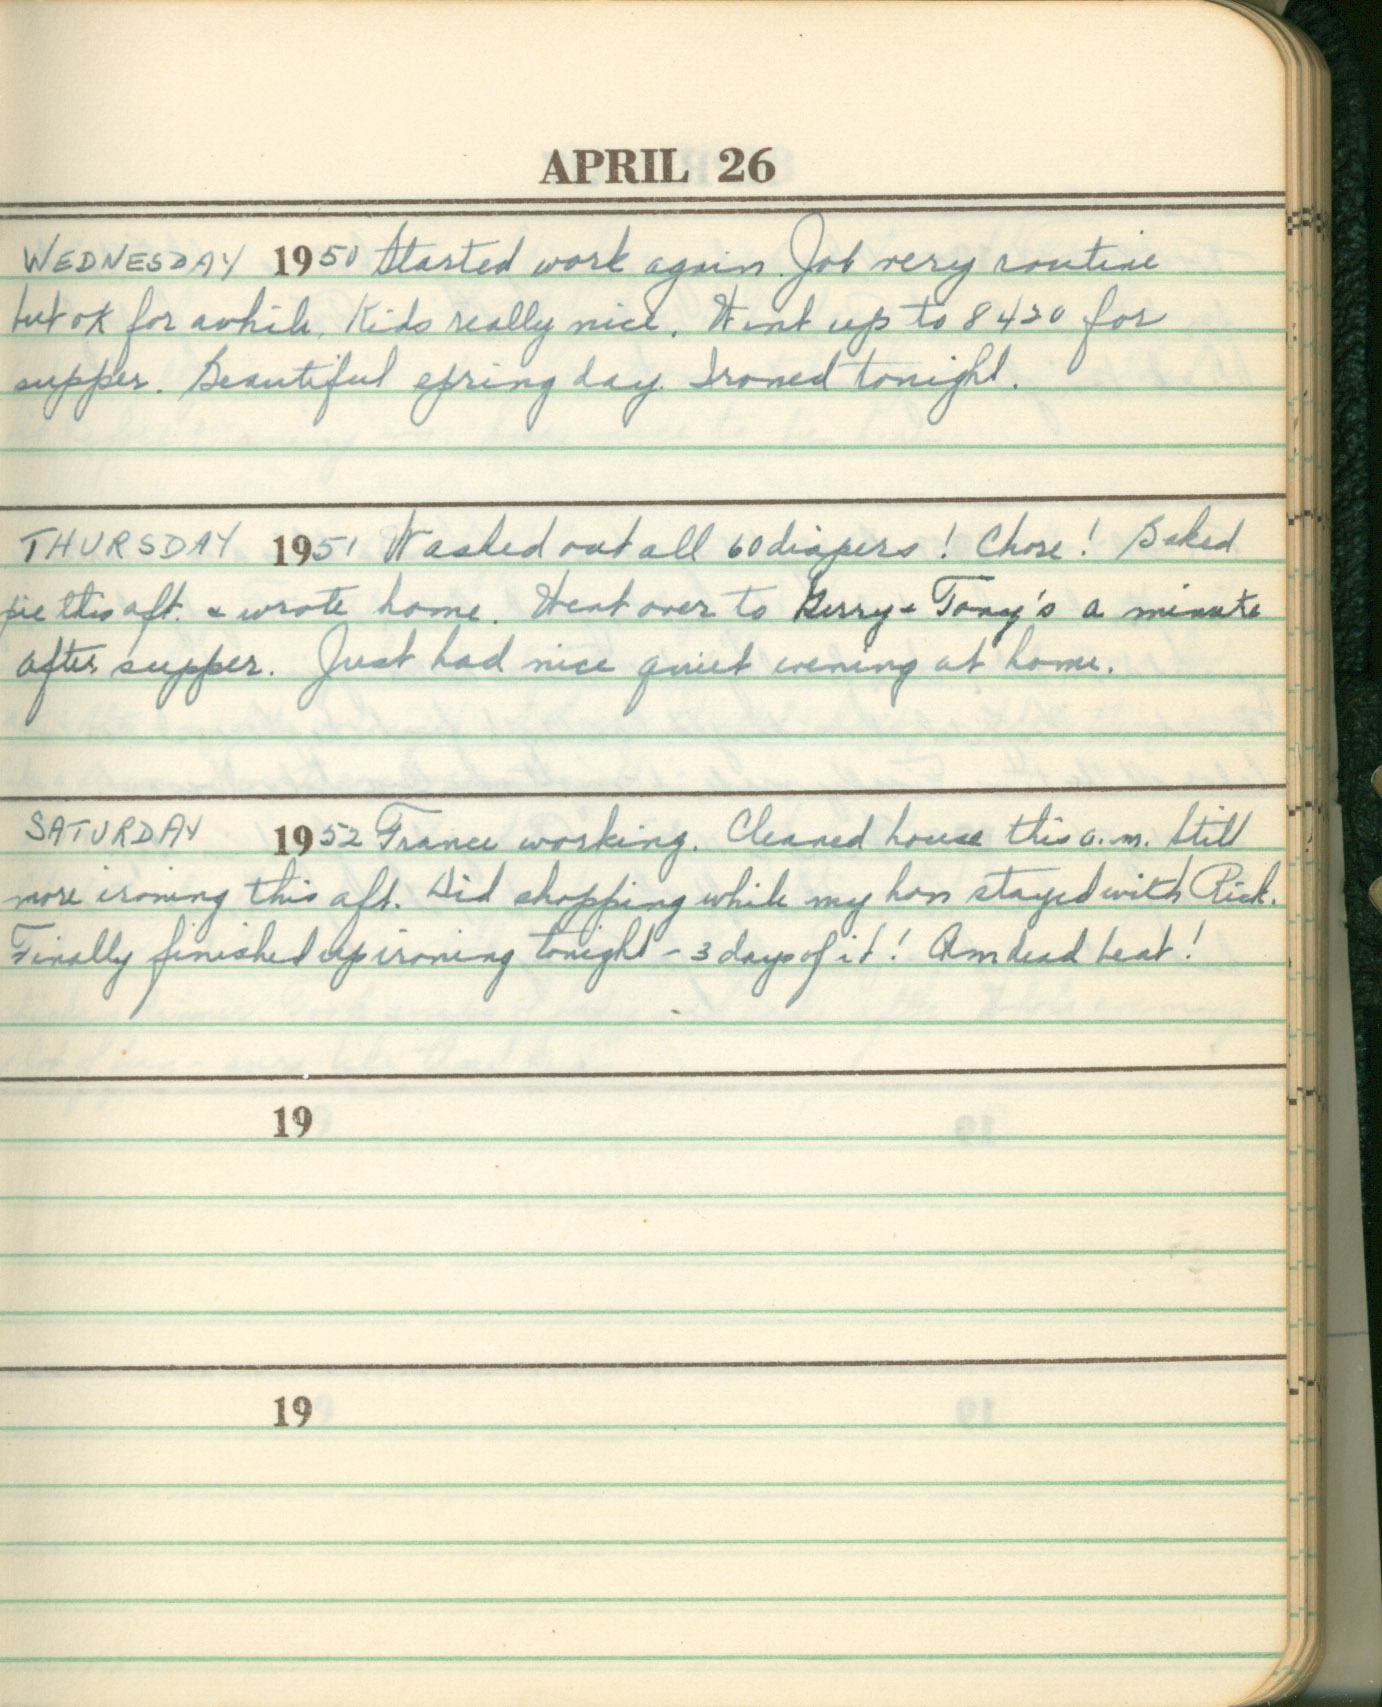 APRIL 26
WEDNESDAY 1950 Started work again. Job very routine
but ok for awhile. Kids really nice. Went up to 8420 for
supper. Beautiful spring day. Ironed tonight.
THURSDAY 1951 Washed out all 60 diapers! Chore! Baked
pie this aft. & wrote home. Went over to Gerry & Tony's a minute
after supper. Just had nice quiet evening at home.
SATURDAY 1952 France working. Cleaned house this a.m. Still
more ironing this aft. Did shopping while my hon stayed with Rick.
Finally finished up ironing tonight - 3 days of it! Am dead beat!
19
19